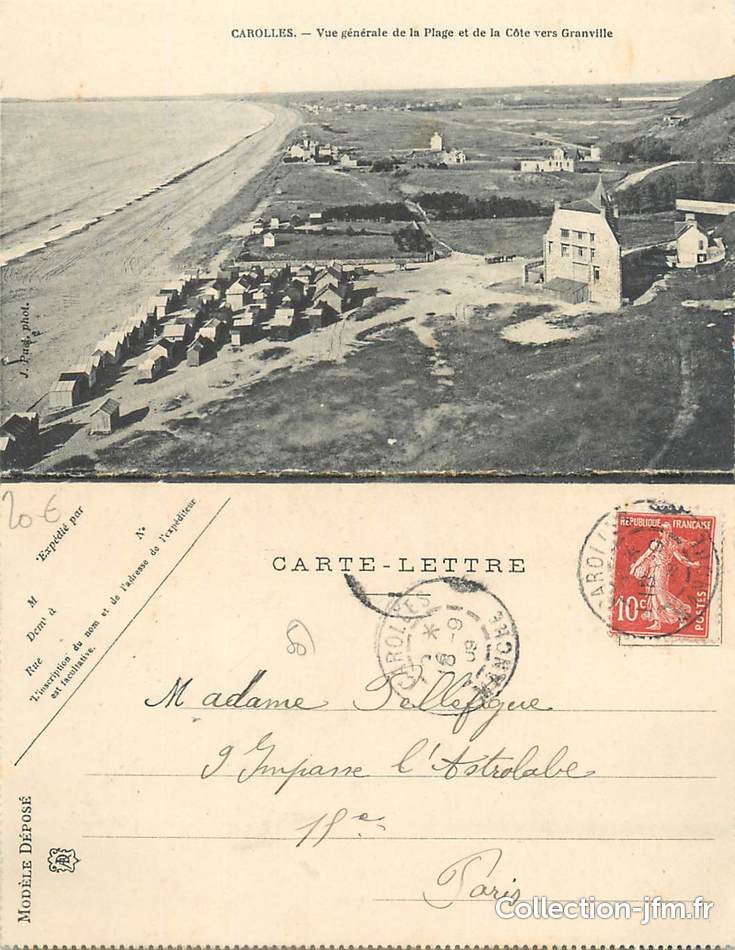 CAROLLES. — Vue générale de la Plage et de la Côte vers Granville
J. Puel, phot.
20 €
N°
Expédié par
M
Demt à
Rue
L'inscription du nom et de l'adresse de l'expéditeur
est facultative.
CARTE-LETTRE
RÉPUBLIQUE FRANÇAISE
10c
POSTES
CAROLLES
MANCHE
CAROLLES
6-8
09
MANCHE
Madame Pellefigue
9 Impasse l'Astrolabe
15e
Paris
MODÈLE DÉPOSÉ
Collection-jfm.fr